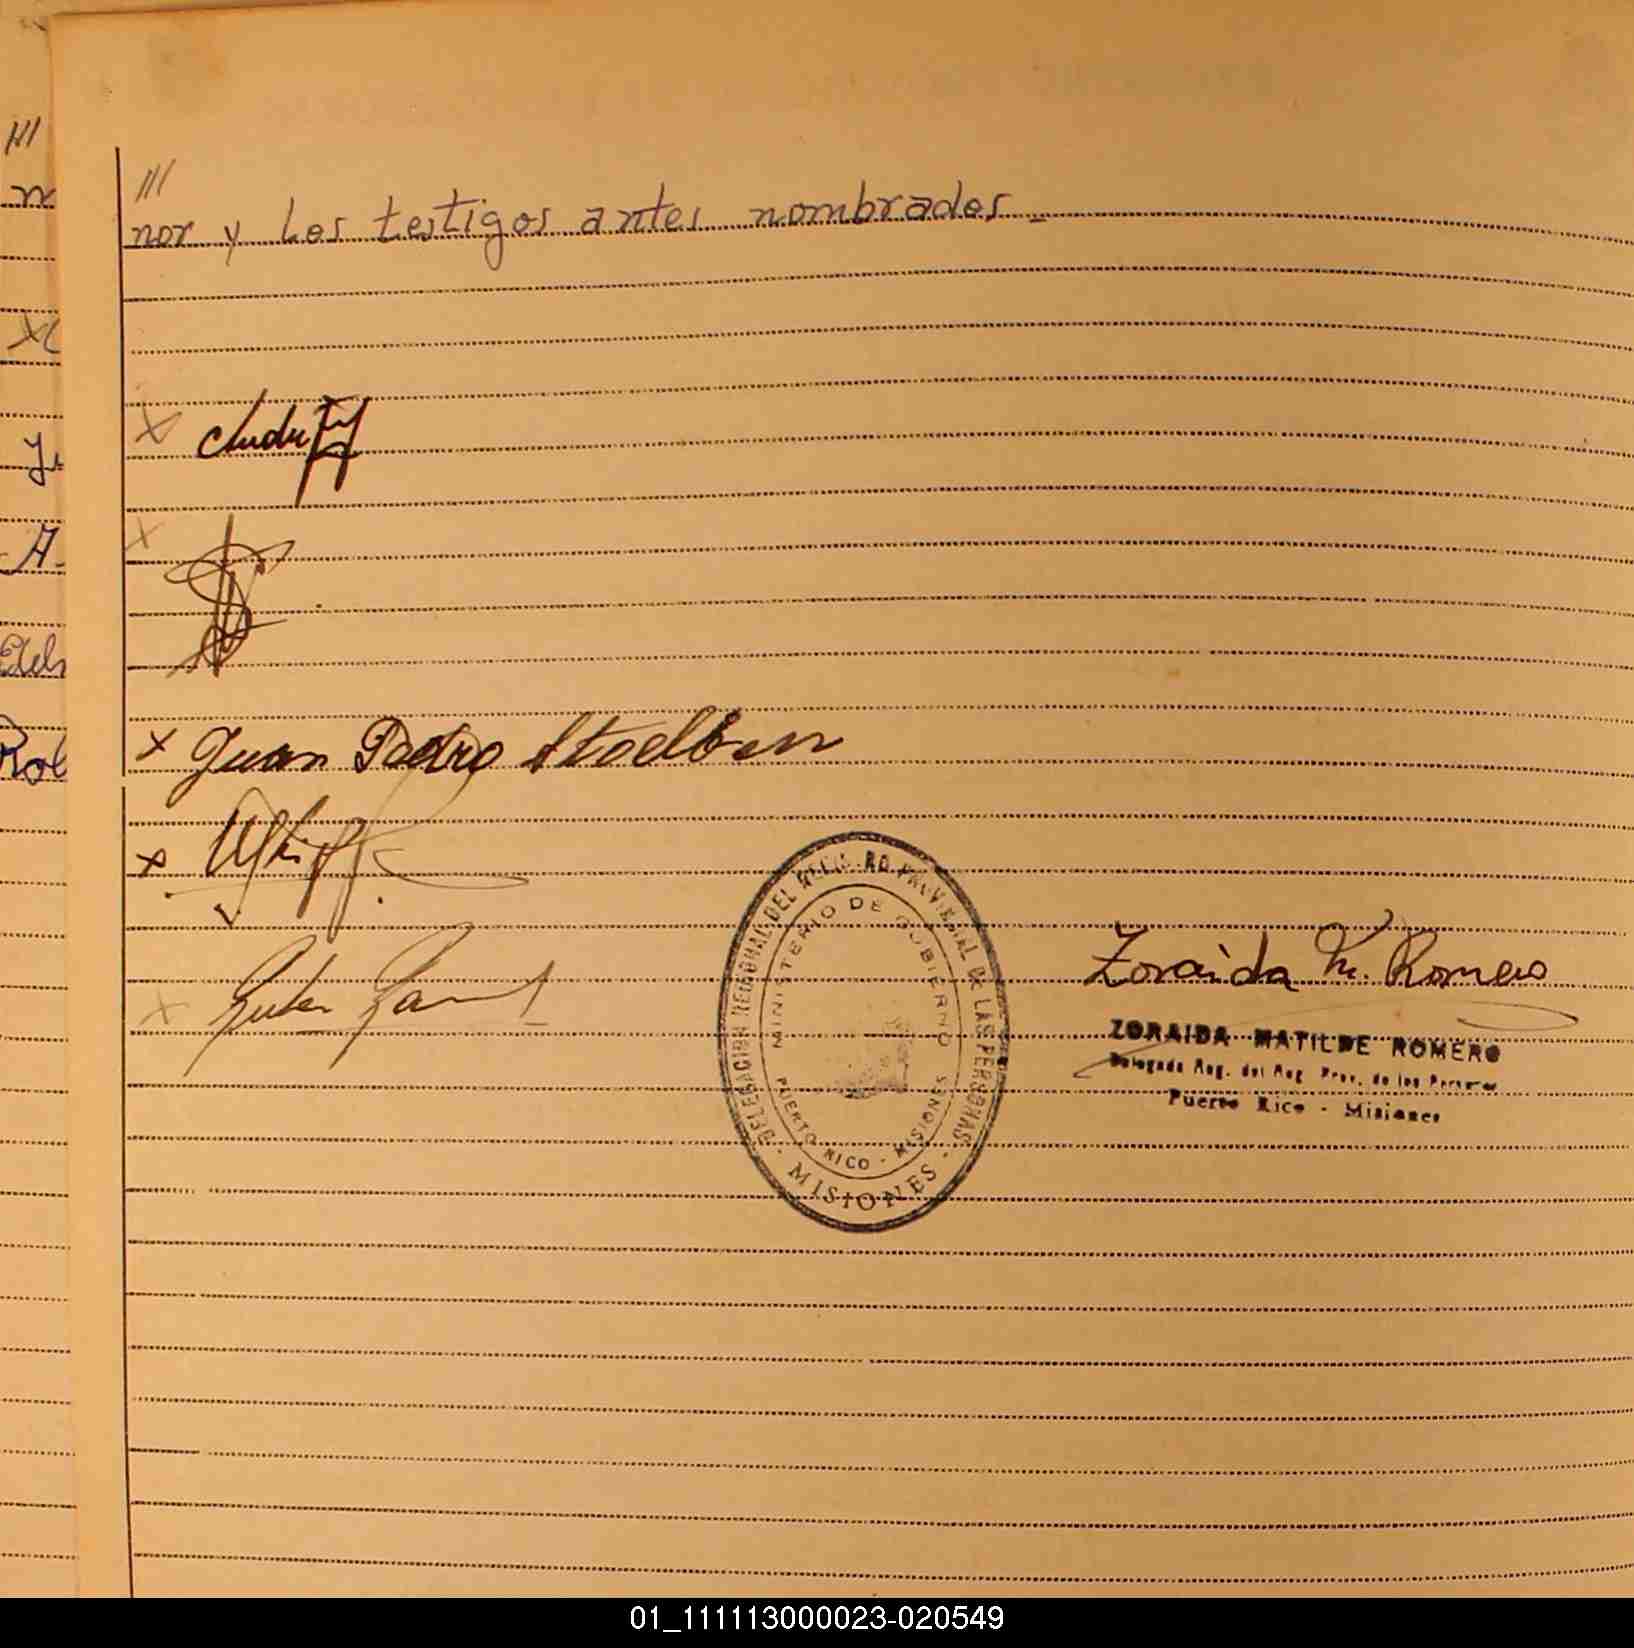 ///
nor y los testigos antes nombrados.-
Juan Pedro Stoelben
Zoraida M. Romero
ZORAIDA MATILDE ROMERO
Delegada Reg. del Reg. Prov. de las Personas
Puerto Rico - Misiones
DELEGACION REGIONAL DEL REGISTRO PROVINCIAL DE LAS PERSONAS
- MISIONES -
MINISTERIO DE GOBIERNO
PUERTO RICO - MISIONES
01_111113000023-020549